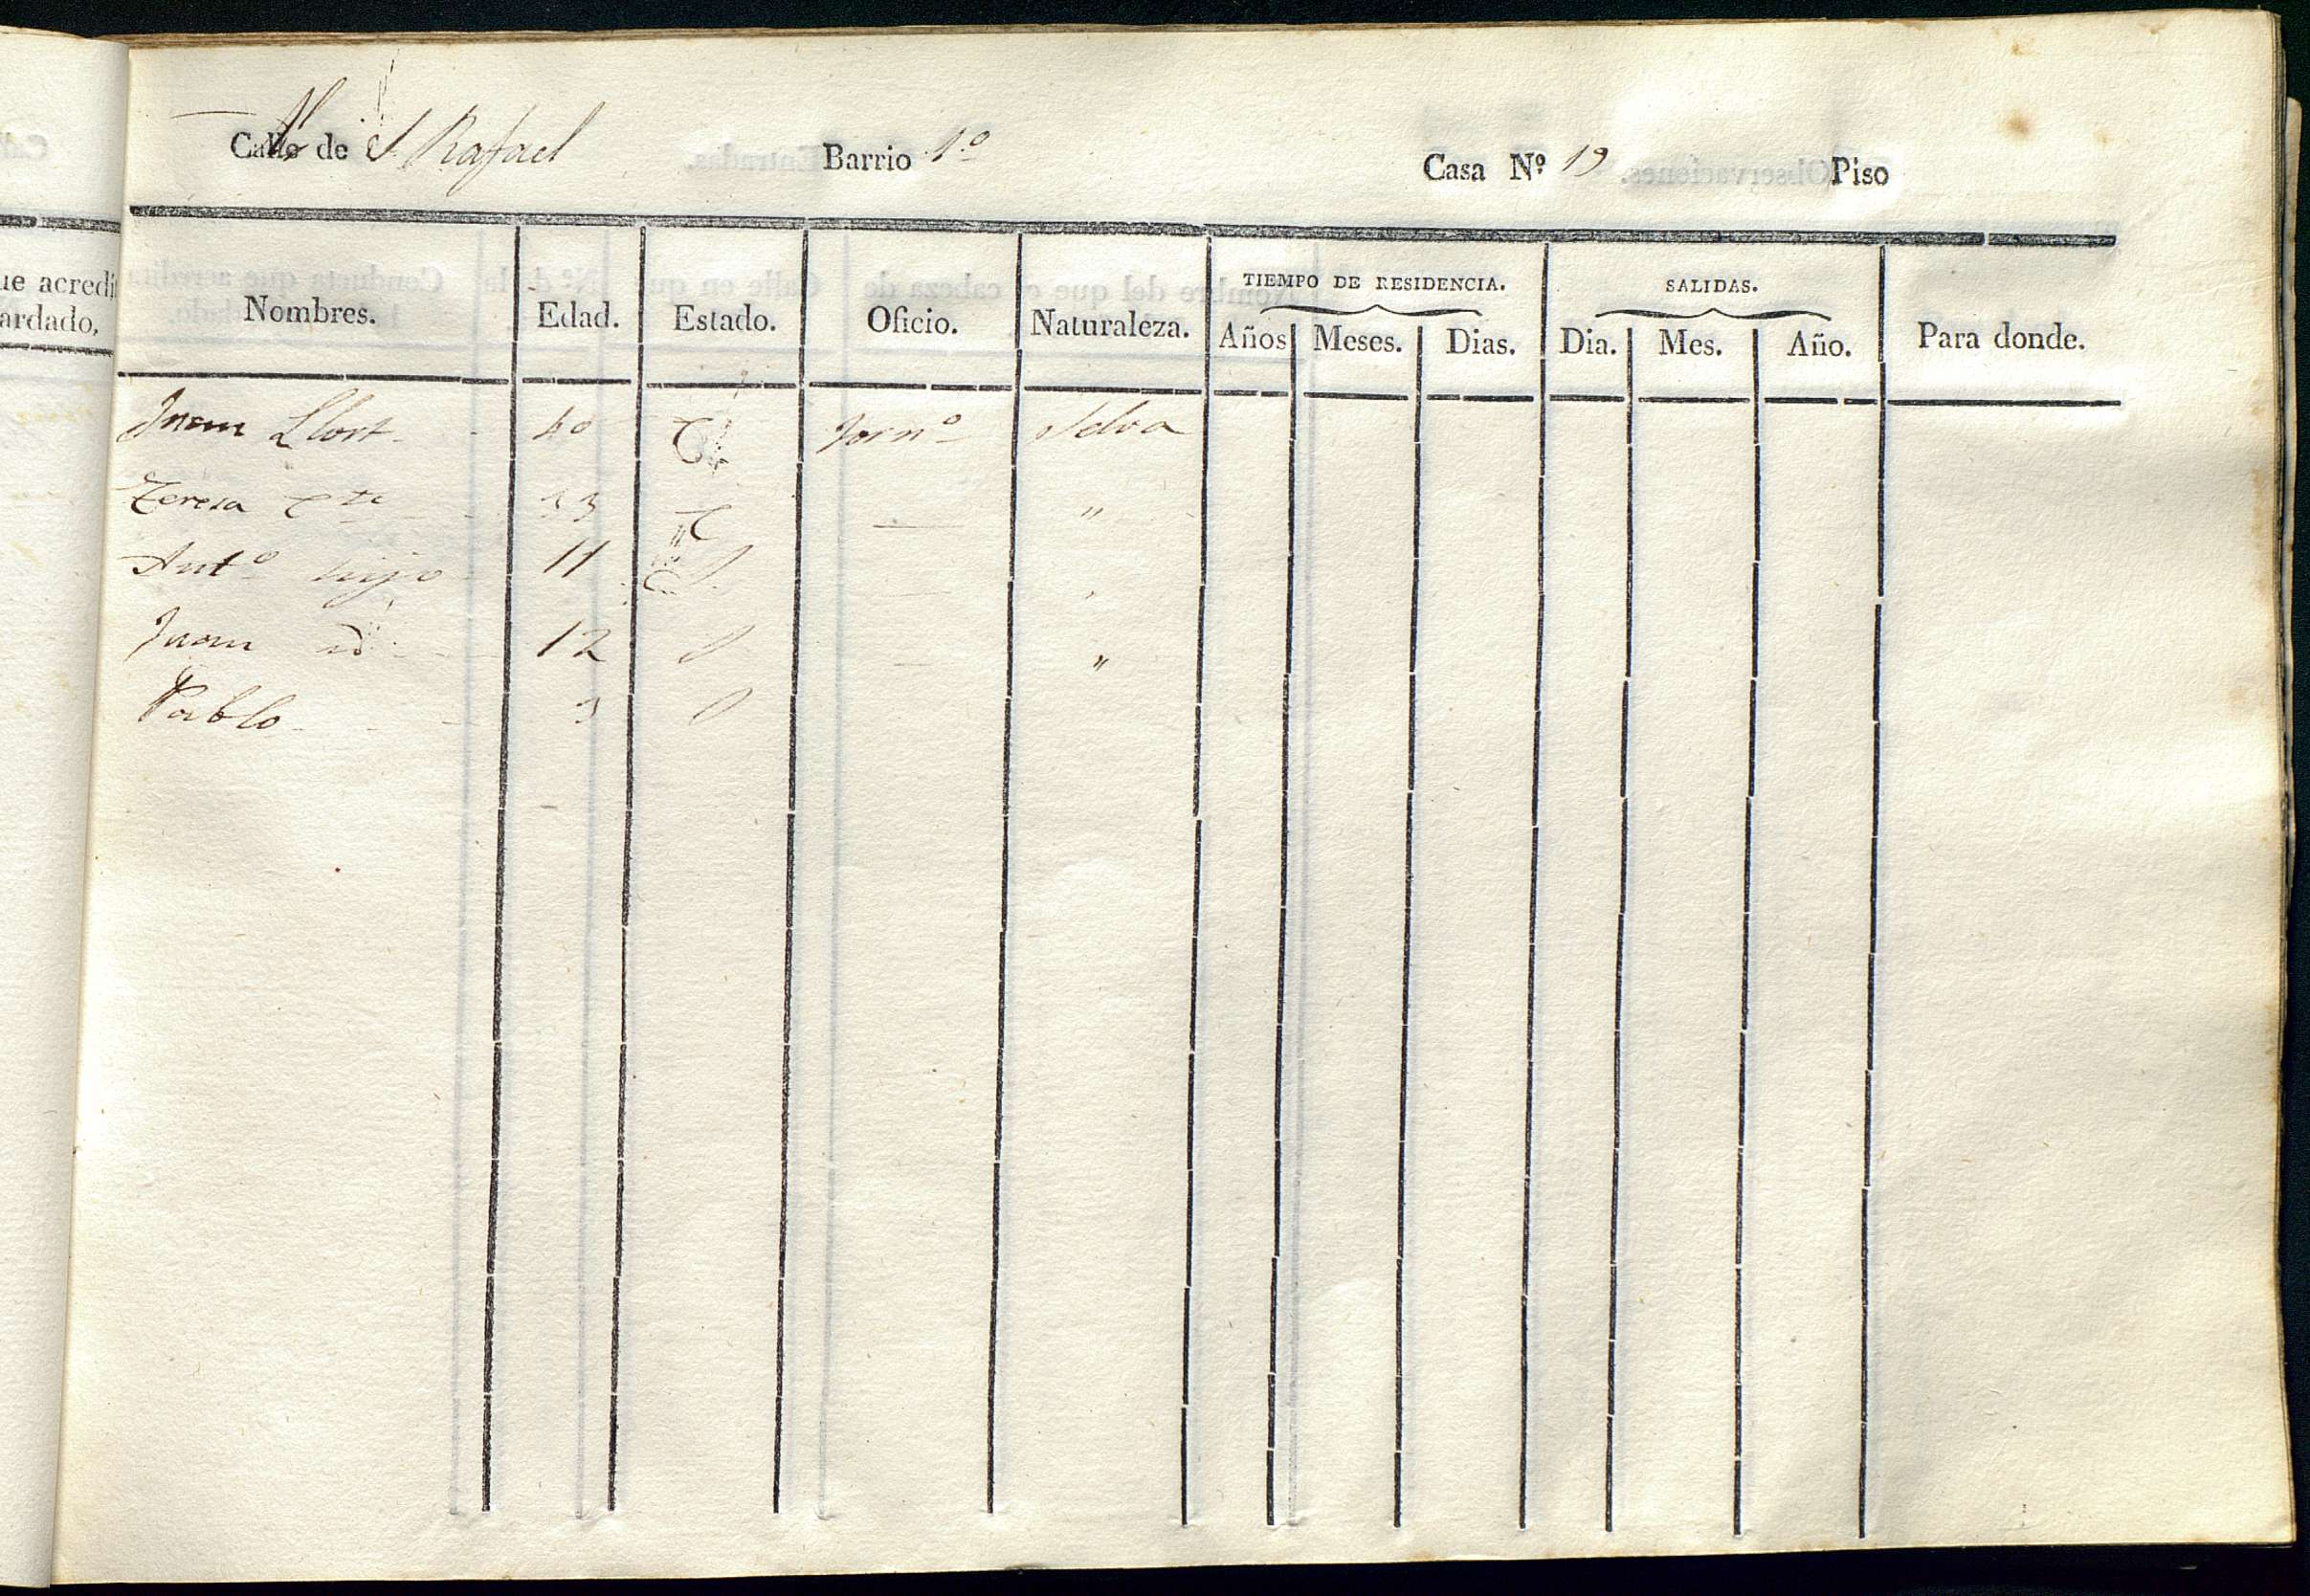 Calle de S. Rafael Barrio 1º Casa Nº 19 Piso
ue acredi
ardado,
TIEMPO DE RESIDENCIA. SALIDAS.
Nombres. Edad. Estado. Oficio. Naturaleza. Años Meses. Dias. Dia. Mes. Año. Para donde.
Juan Llort 40 C Jornº Selva
Teresa 33 C — "
Antº hijo 11 S —
Juan id 12 S — "
Pablo 3 S